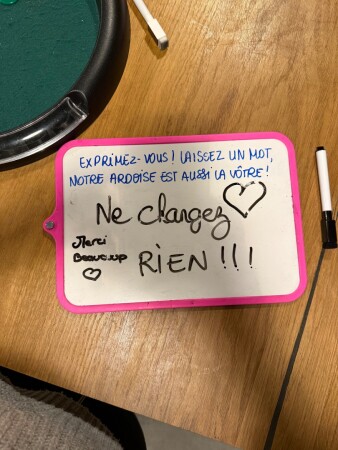 EXPRIMEZ-VOUS ! LAISSEZ UN MOT,
NOTRE ARDOISE EST AUSSI LA VÔTRE !
Ne changez
Merci
Beaucoup
RIEN !!!